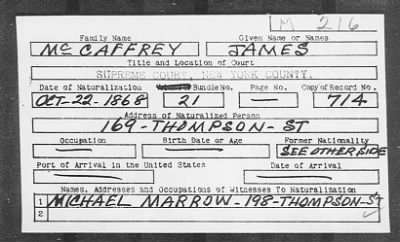 M 216
Family Name Given Name or Names
Mc CAFFREY JAMES
Title and Location of Court
SUPREME COURT, NEW YORK COUNTY.
Date of Naturalization Bundle No. Page No. Copy of Record No.
OCT-22-1868 21 — 714
Address of Naturalized Person
169-THOMPSON-ST
Occupation Birth Date or Age Former Nationality
— — SEE OTHER SIDE
Port of Arrival in the United States Date of Arrival
— —
Names, Addresses and Occupations of Witnesses To Naturalization
1 MICHAEL MARROW-198-THOMPSON-ST
2